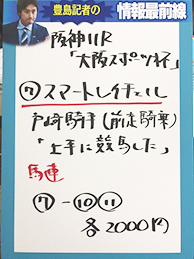 豊島記者の
情報最前線
阪神11R
「大阪スポーツ杯」
⑦スマートレイチェル
戸崎騎手(前走騎乗)
「上手に競馬した」
馬連
⑦-⑩⑪
各2000円